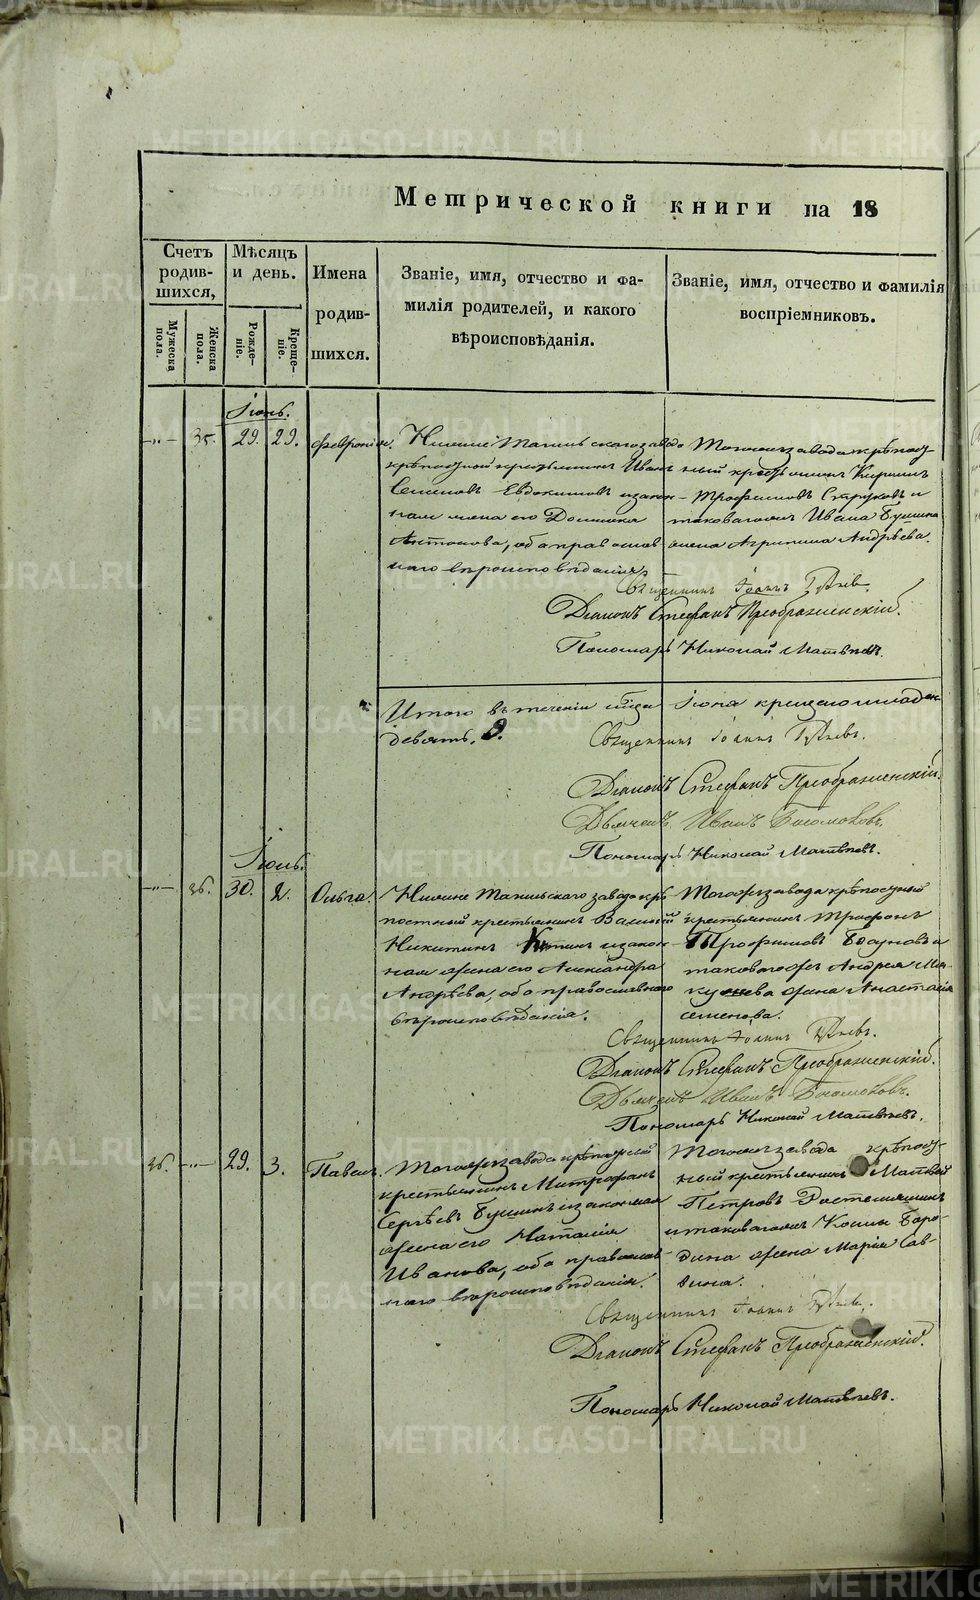 METRIKI.GASO-URAL.RU
Метрической книги на 18
Счетъ
родив-
шихся,
Мужеска
пола.
Женска
пола.
Мѣсяцъ
и день.
Рожде-
ніе.
Креще-
ніе.
Имена
родив-
шихся.
Званіе, имя, отчество и фа-
милія родителей, и какого
вѣроисповѣданія.
Званіе, имя, отчество и фамилія
воспріемниковъ.
Іюнь.
35. 29. 29. Февронія.
Нижне Тагильскаго завода
крѣпостной крестьянинъ Иванъ
Семеновъ Евдокимовъ и закон-
ная жена его Домника
Антонова, оба православ-
наго вѣроисповѣданія
Тогоже завода крѣпост-
ный крестьянинъ Кириллъ
Трофимовъ Струковъ и
таковагожъ Ивана
жена Агрипина Андрѣева.
Священникъ Іоаннъ
Діаконъ Стефанъ Преображенскій.
Пономарь Николай Матвѣевъ.
Итого въ теченіи Іюня крещено младен
девять. 9.
Священникъ Іоаннъ
Діаконъ Стефанъ Преображенскій.
Дьячекъ Иванъ
Пономарь Николай Матвѣевъ.
Іюль.
36. 30. 2. Ольга.
Нижне Тагильскаго завода крѣ-
постный крестьянинъ Василій
Никитинъ и закон-
ная жена его Александра
Андрѣева, оба православнаго
вѣроисповѣданія.
Тогоже завода крѣпостный
крестьянинъ Трифонъ
Трофимовъ и
таковагожъ Андрея
жена Анастасія
Семенова.
Священникъ Іоаннъ
Діаконъ Стефанъ Преображенскій.
Дьячекъ Иванъ
Пономарь Николай Матвѣевъ.
36. 29. 3. Павелъ.
Тогоже завода крѣпостной
крестьянинъ Митрофанъ
Сергѣевъ и законная
жена его Наталія
Иванова, оба православ-
наго вѣроисповѣданія.
Тогоже завода крѣпост-
ный крестьянинъ Матвей
Петровъ
и таковагожъ Козмы Боро-
дина жена Марія Сав-
вина.
Священникъ Іоаннъ
Діаконъ Стефанъ Преображенскій.
Пономарь Николай Матвѣевъ.